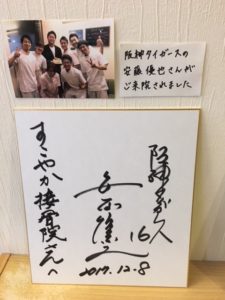 阪神タイガースの
安藤優也さんが
ご来院されました
阪神タイガース
16
2017.12.8
すこやか接骨院さんへ